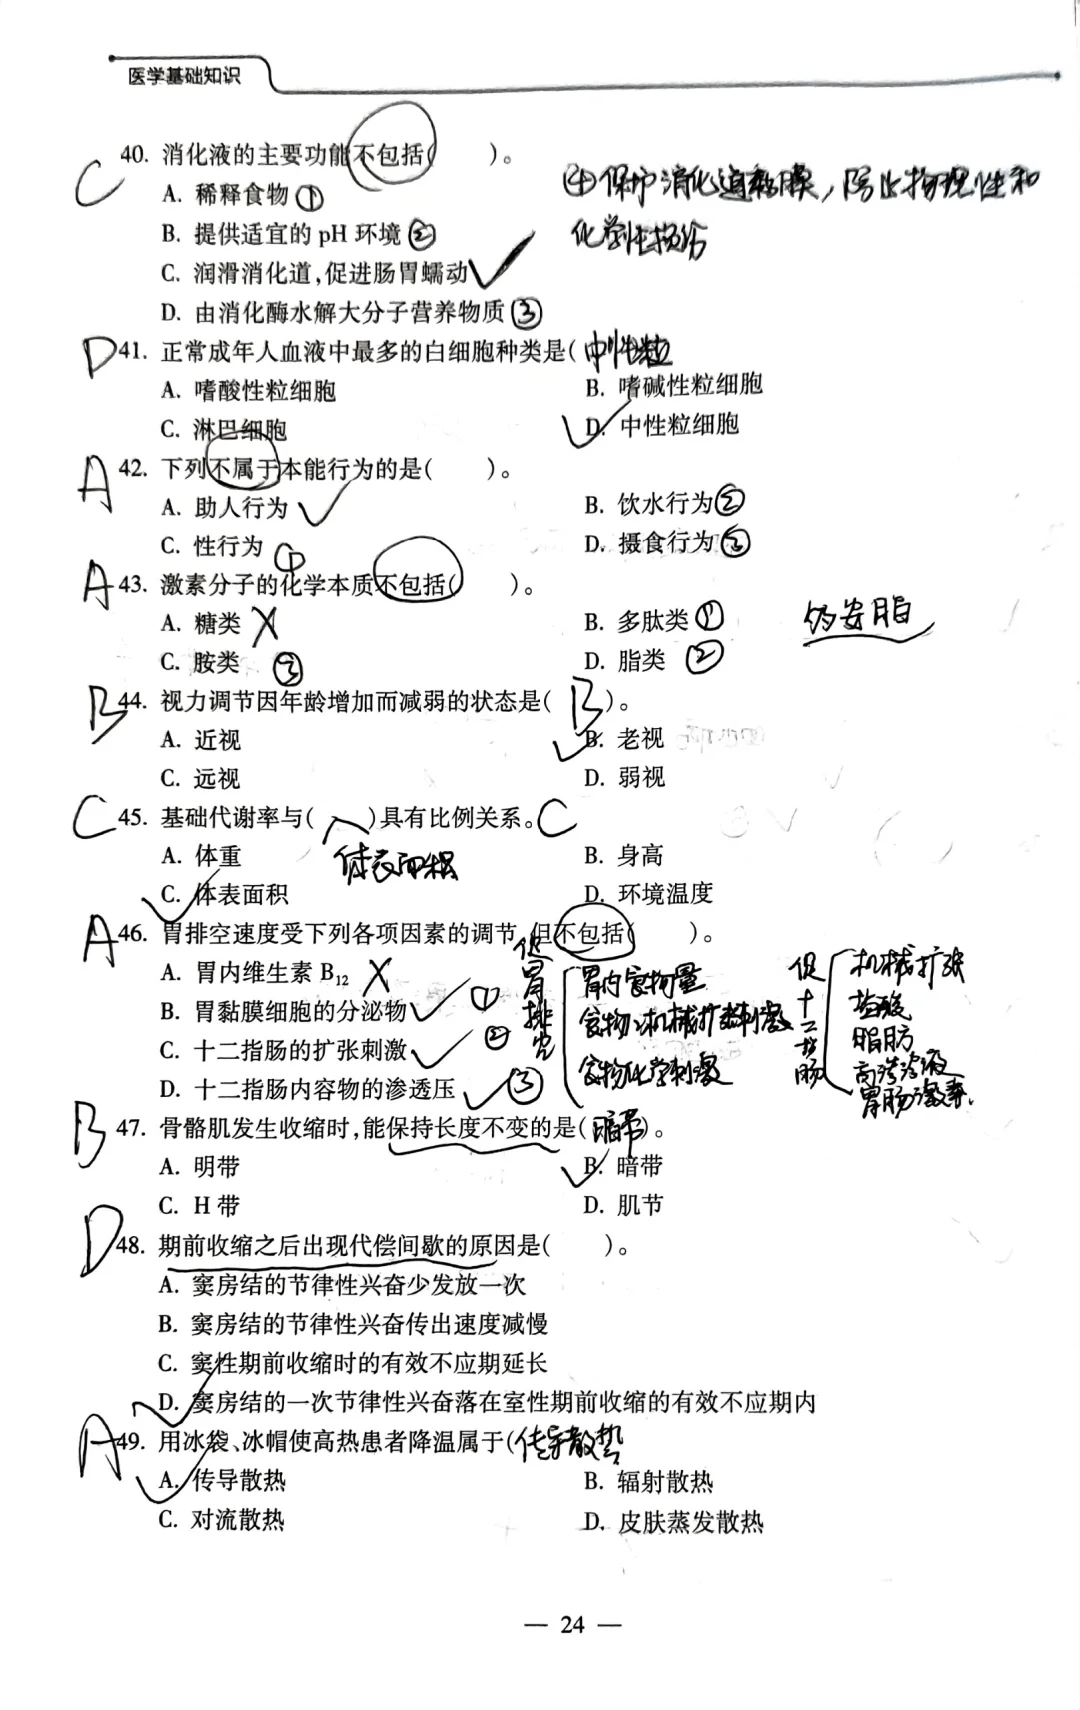 医学基础知识
C 40. 消化液的主要功能不包括(　　)。
A. 稀释食物 ①
④保护消化道黏膜，防止物理性和
B. 提供适宜的 pH 环境 ②
化学性损伤
C. 润滑消化道,促进肠胃蠕动
D. 由消化酶水解大分子营养物质 ③
D 41. 正常成年人血液中最多的白细胞种类是( 中性粒
A. 嗜酸性粒细胞 B. 嗜碱性粒细胞
C. 淋巴细胞 D. 中性粒细胞
A 42. 下列不属于本能行为的是(　　)。
A. 助人行为 B. 饮水行为 ②
C. 性行为 ① D. 摄食行为 ③
A 43. 激素分子的化学本质不包括(　　)。
A. 糖类 B. 多肽类 ①
C. 胺类 ③ D. 脂类 ②
B 44. 视力调节因年龄增加而减弱的状态是( B )。
A. 近视 B. 老视
C. 远视 D. 弱视
C 45. 基础代谢率与(　　)具有比例关系。 C
A. 体重 体表面积 B. 身高
C. 体表面积 D. 环境温度
A 46. 胃排空速度受下列各项因素的调节,但不包括(　　)。
A. 胃内维生素 B₁₂
B. 胃黏膜细胞的分泌物 ①
C. 十二指肠的扩张刺激 ②
D. 十二指肠内容物的渗透压 ③
促胃排空
胃内食物量
食物机械扩张刺激
食物化学刺激
促十二指肠
机械扩张
盐酸
脂肪
高渗溶液
胃肠激素.
B 47. 骨骼肌发生收缩时,能保持长度不变的是( 暗带 )。
A. 明带 B. 暗带
C. H 带 D. 肌节
D 48. 期前收缩之后出现代偿间歇的原因是(　　)。
A. 窦房结的节律性兴奋少发放一次
B. 窦房结的节律性兴奋传出速度减慢
C. 窦性期前收缩时的有效不应期延长
D. 窦房结的一次节律性兴奋落在室性期前收缩的有效不应期内
A 49. 用冰袋、冰帽使高热患者降温属于( 传导散热
A. 传导散热 B. 辐射散热
C. 对流散热 D. 皮肤蒸发散热
— 24 —